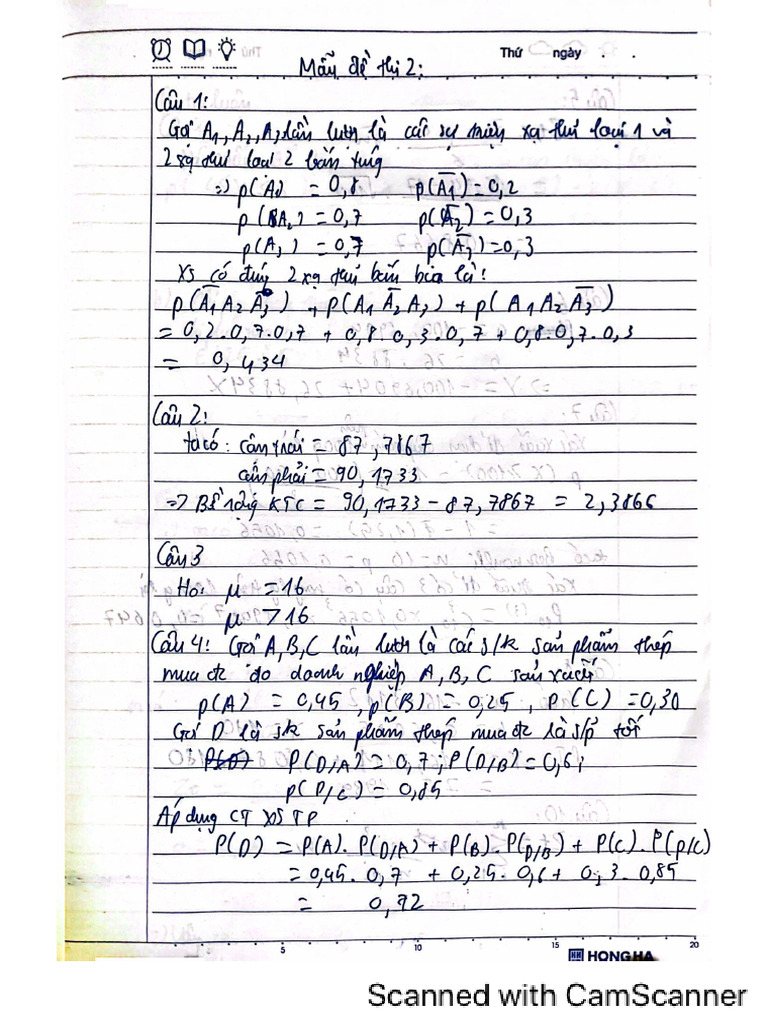 Thứ ngày . .
Mẫu đề thi 2:
Câu 1:
Gọi A1, A2, A3 lần lượt là các sự miện xạ thủ loại 1 và
2 xạ thủ loại 2 bắn trúng
=> p(A1) = 0,8 p(A̅1) = 0,2
p(A2) = 0,7 p(A̅2) = 0,3
p(A3) = 0,7 p(A̅3) = 0,3
XS có đúng 2 xạ thủ bắn bia là:
p(A̅1 A2 A3) + p(A1 A̅2 A3) + p(A1 A2 A̅3)
= 0,2.0,7.0,7 + 0,8.0,3.0,7 + 0,8.0,7.0,3
= 0,434
Câu 2:
ta có: cận trái = 87,7867
cận phải = 90,1733
=> Bề rộng KTC = 90,1733 - 87,7867 = 2,3866
Câu 3
Ho: μ = 16
μ > 16
Câu 4: Gọi A, B, C lần lượt là các s/k sản phẩm thép
mua đc do doanh nghiệp A, B, C sản xuất
p(A) = 0,45, p(B) = 0,25, p(C) = 0,30
Gọi D là s/k sản phẩm thép mua đc là s/p tốt
P(D) P(D/A) = 0,7; P(D/B) = 0,6;
p(D/C) = 0,85
Áp dụng CT XS TP
P(D) = P(A). P(D/A) + P(B). P(D/B) + P(C). P(D/C)
= 0,45. 0,7 + 0,25. 0,6 + 0,3. 0,85
= 0,72
5 10 15 20
HONG HA
Scanned with CamScanner